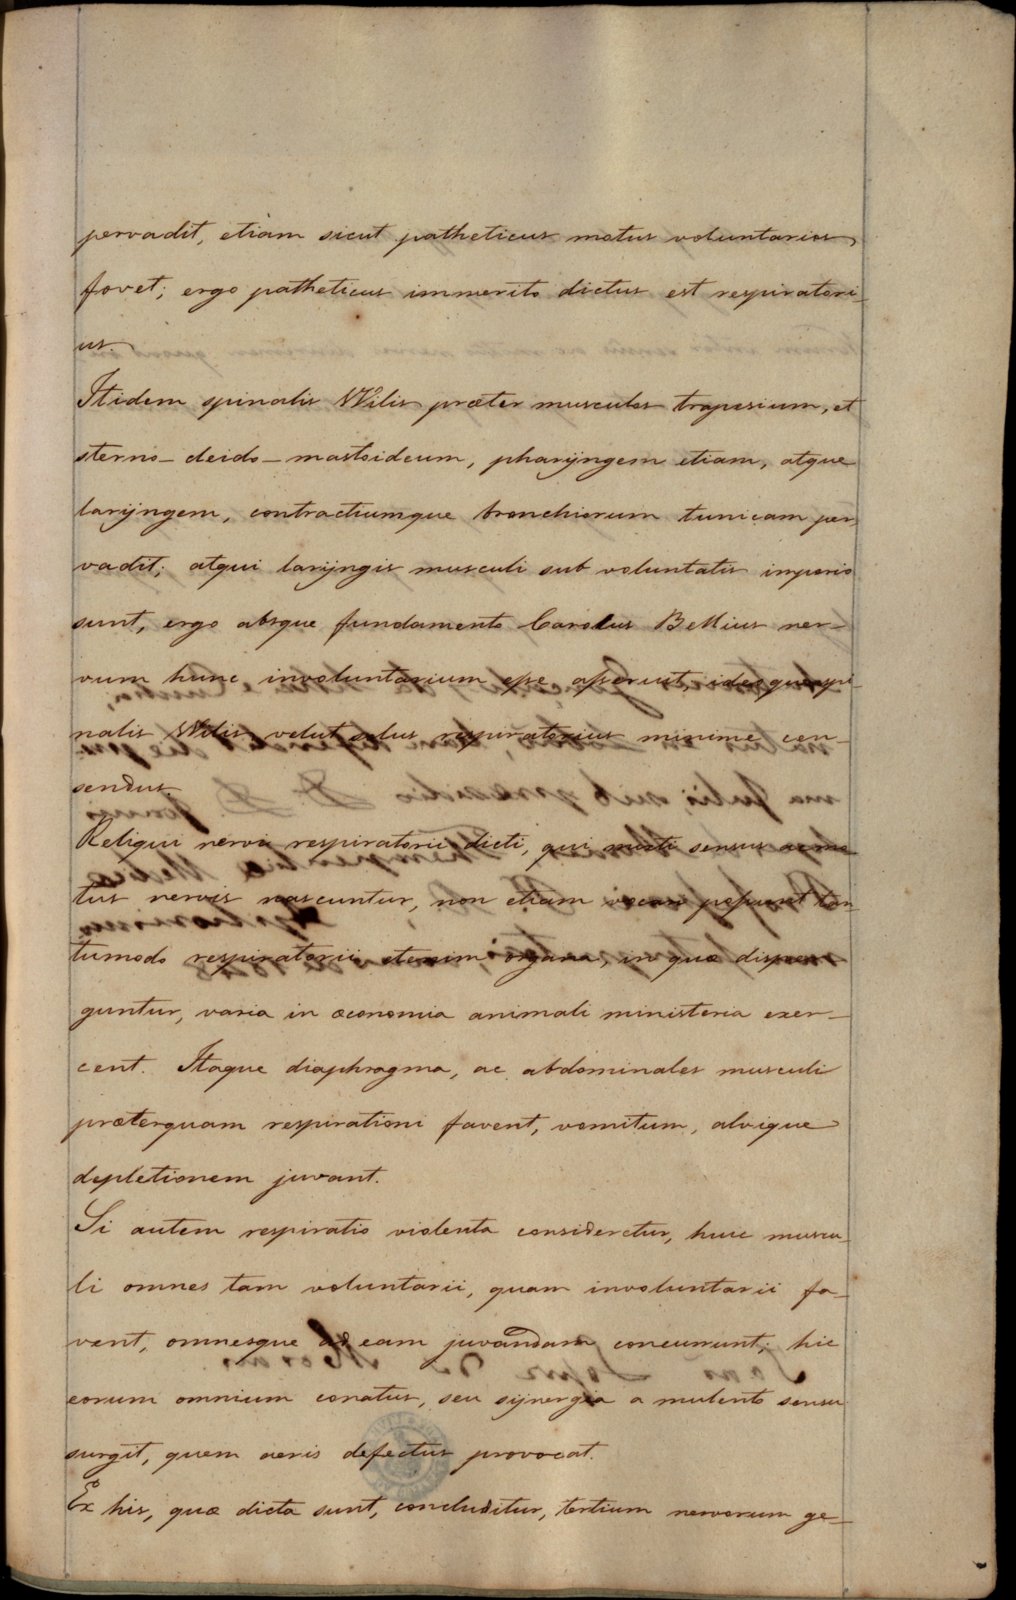 pervadit, etiam sicut patheticus motus voluntarios
fovet; ergo patheticus immerito dictus est respiratori-
us.
Itidem spinalis Wilis præter musculos trapesium, et
sterno-cleido-mastoideum, pharijngem etiam, atque
larijngem, contractiumque bronchiorum tunicam per
vadit; atqui larijngis musculi sub voluntatis imperio
sunt, ergo absque fundamento Carolus Bellius ner-
vum hunc involuntarium esse asseruit, ideoque spi
nalis Wilis velut solus respiratorius minime cen-
sendus.
Reliqui nervi respiratorii dicti, qui mixti sensus ac mo
tus nervis nascuntur, non etiam vocari possunt tan
tumodo respiratorii etenim organa, in quæ disper
guntur, varia in œconomia animali ministeria exer-
cent. Itaque diaphragma, ac abdominales musculi
præterquam respirationi favent, vomitum, alvique
depletionem juvant.
Si autem respiratio violenta consideretur, huic muscu-
li omnes tam voluntarii, quam involuntarii fa-
vent, omnesque ad eam juvandam concurrunt; hic
eorum omnium conatus, seu sijnergia a mulento sensu
surgit, quem aeris defectus provocat.
Ex his, quæ dicta sunt, concluditur, tertium nervorum ge-